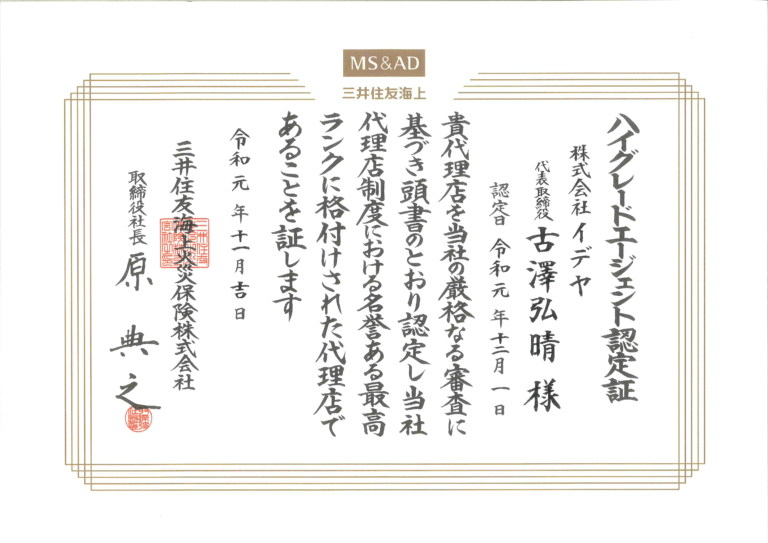 MS&AD
三井住友海上
ハイグレードエージェント認定証
株式会社イデヤ
代表取締役 古澤弘晴 様
認定日 令和元年十二月一日
貴代理店を当社の厳格なる審査に
基づき頭書のとおり認定し当社
代理店制度における名誉ある最高
ランクに格付けされた代理店で
あることを証します
令和元年十一月吉日
三井住友海上火災保険株式会社
取締役社長 原典之